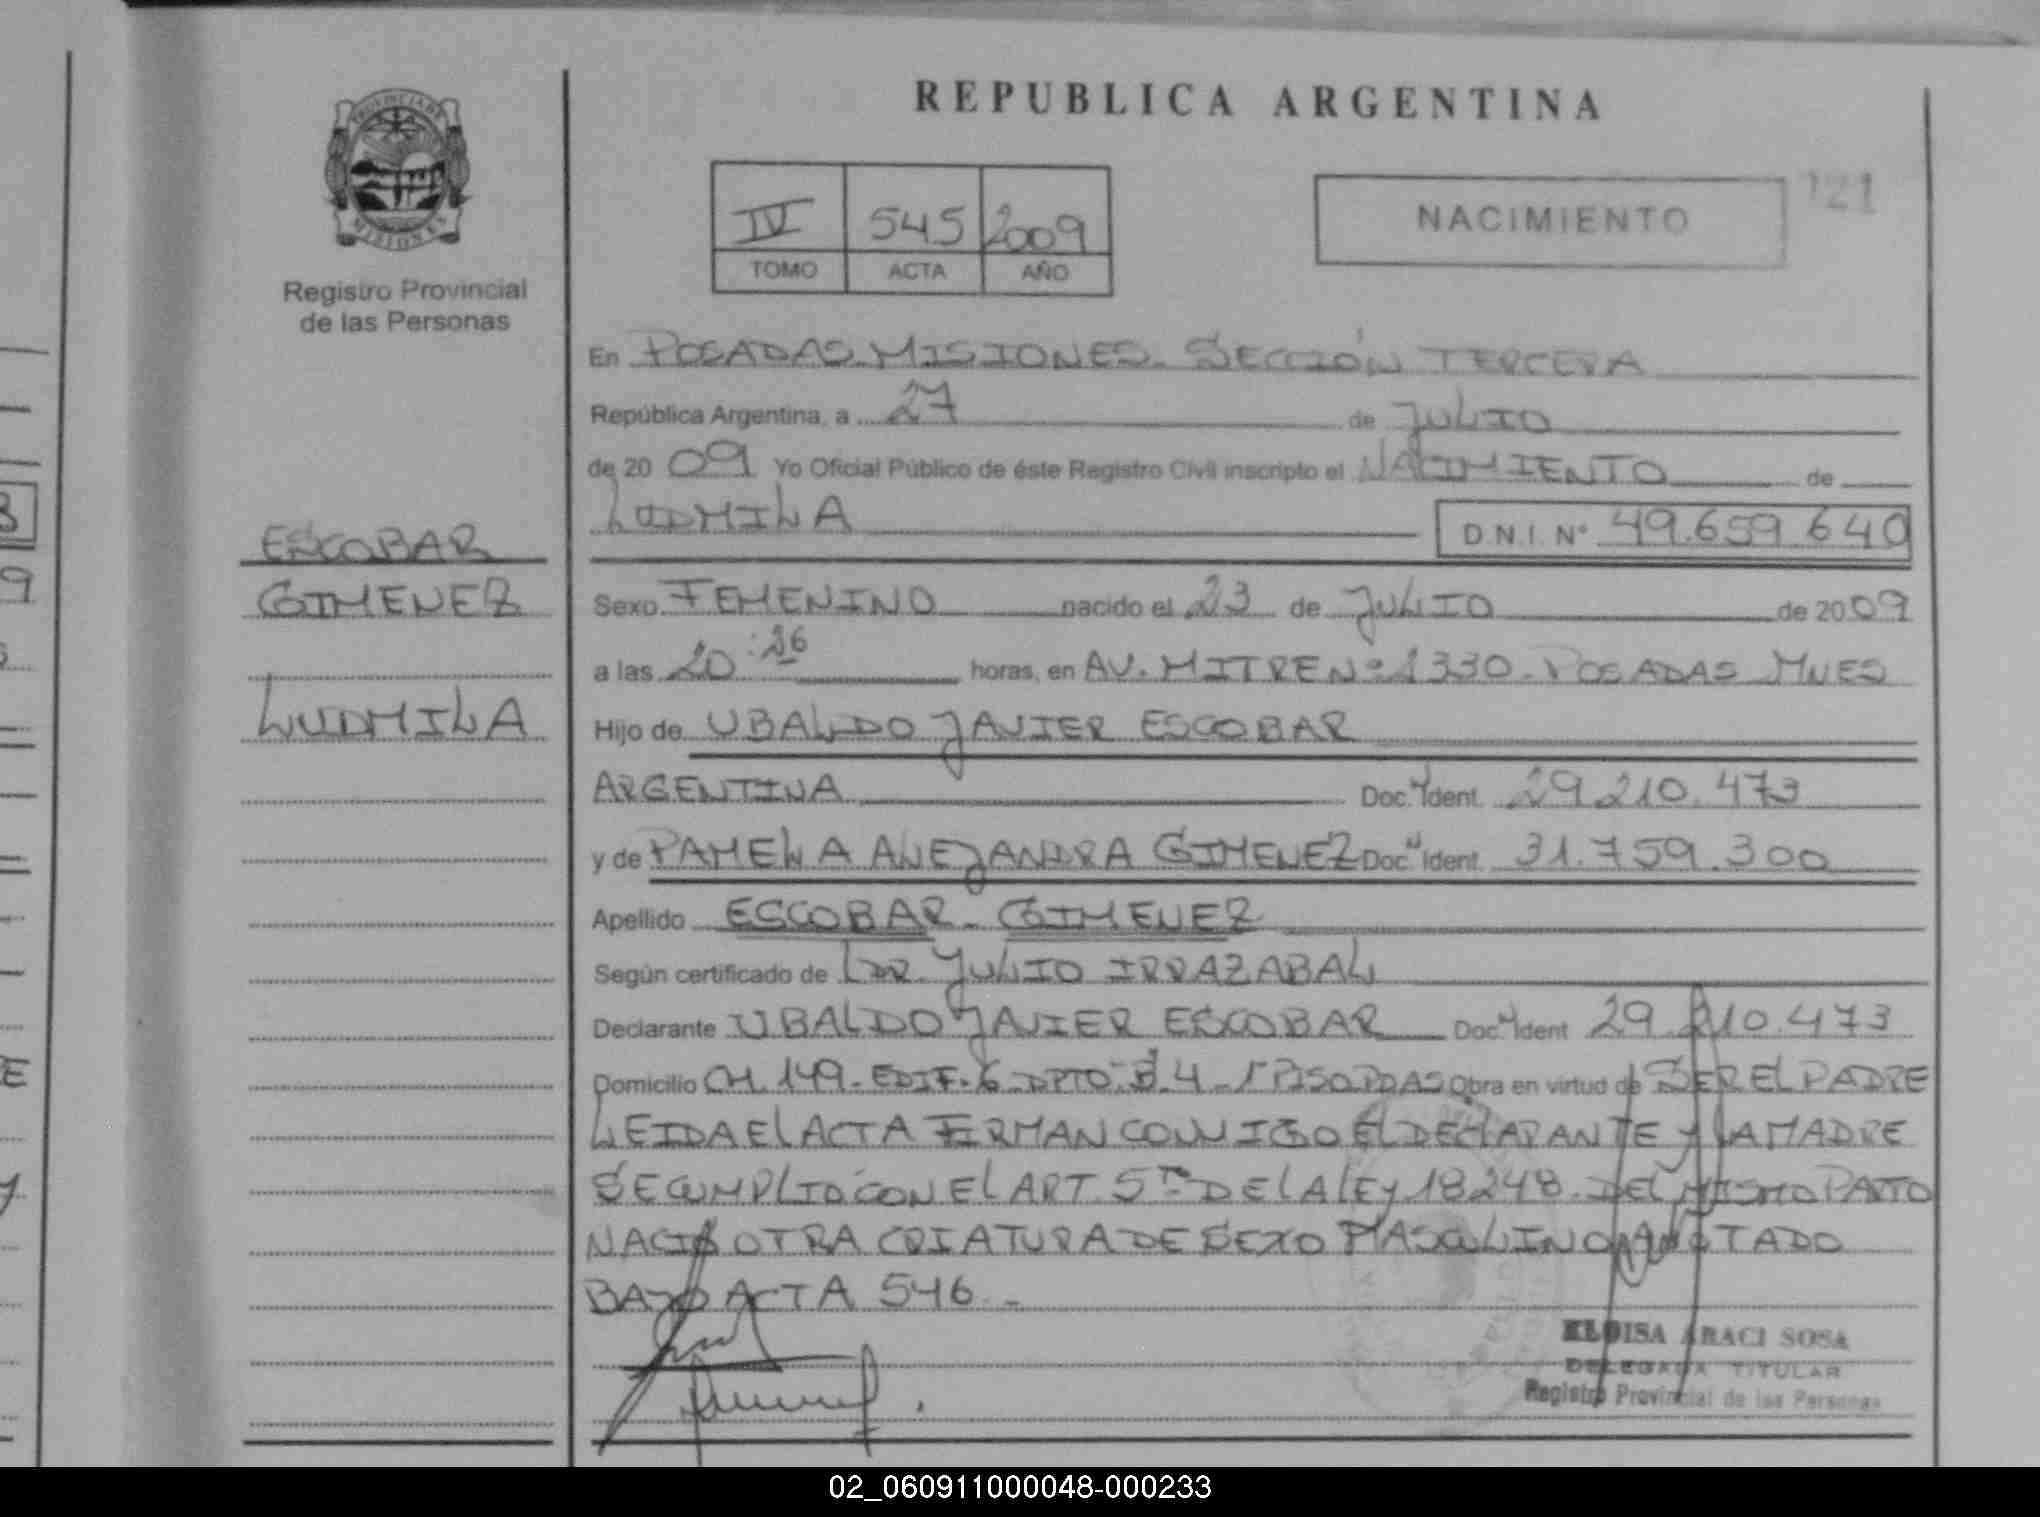 REPUBLICA ARGENTINA
PROVINCIA DE
MISIONES
Registro Provincial
de las Personas
IV 545 2009
TOMO ACTA AÑO
NACIMIENTO
121
En POSADAS MISIONES. SECCIÓN TERCERA
República Argentina, a 27 de JULIO
de 20 09 Yo Oficial Público de éste Registro Civil inscripto el NACIMIENTO de
LUDMILA D.N.I. Nº 49.659.640
ESCOBAR
GIMENEZ
LUDMILA
Sexo FEMENINO nacido el 23 de JULIO de 2009
a las 20:26 horas, en AV. MITRE Nº 1330. POSADAS MNES
Hijo de UBALDO JAVIER ESCOBAR
ARGENTINA Doc. Ident. 29.210.473
y de PAMELA ALEJANDRA GIMENEZ Doc. Ident. 31.759.300
Apellido ESCOBAR - GIMENEZ
Según certificado de DR. JULIO IRRAZABAL
Declarante UBALDO JAVIER ESCOBAR Doc. Ident 29.210.473
Domicilio CH. 149 - EDIF. 6 DPTO. 4 - 1 PISO PDAS Obra en virtud de SER EL PADRE
LEIDA EL ACTA FIRMAN CONMIGO EL DECLARANTE Y LA MADRE
SE CUMPLIO CON EL ART. 5TO DE LA LEY 18248. DEL MISMO PARTO
NACIO OTRA CRIATURA DE SEXO MASCULINO ANOTADO
BAJO ACTA 546.-
ELOISA ARACI SOSA
DELEGADA TITULAR
Registro Provincial de las Personas
02_060911000048-000233